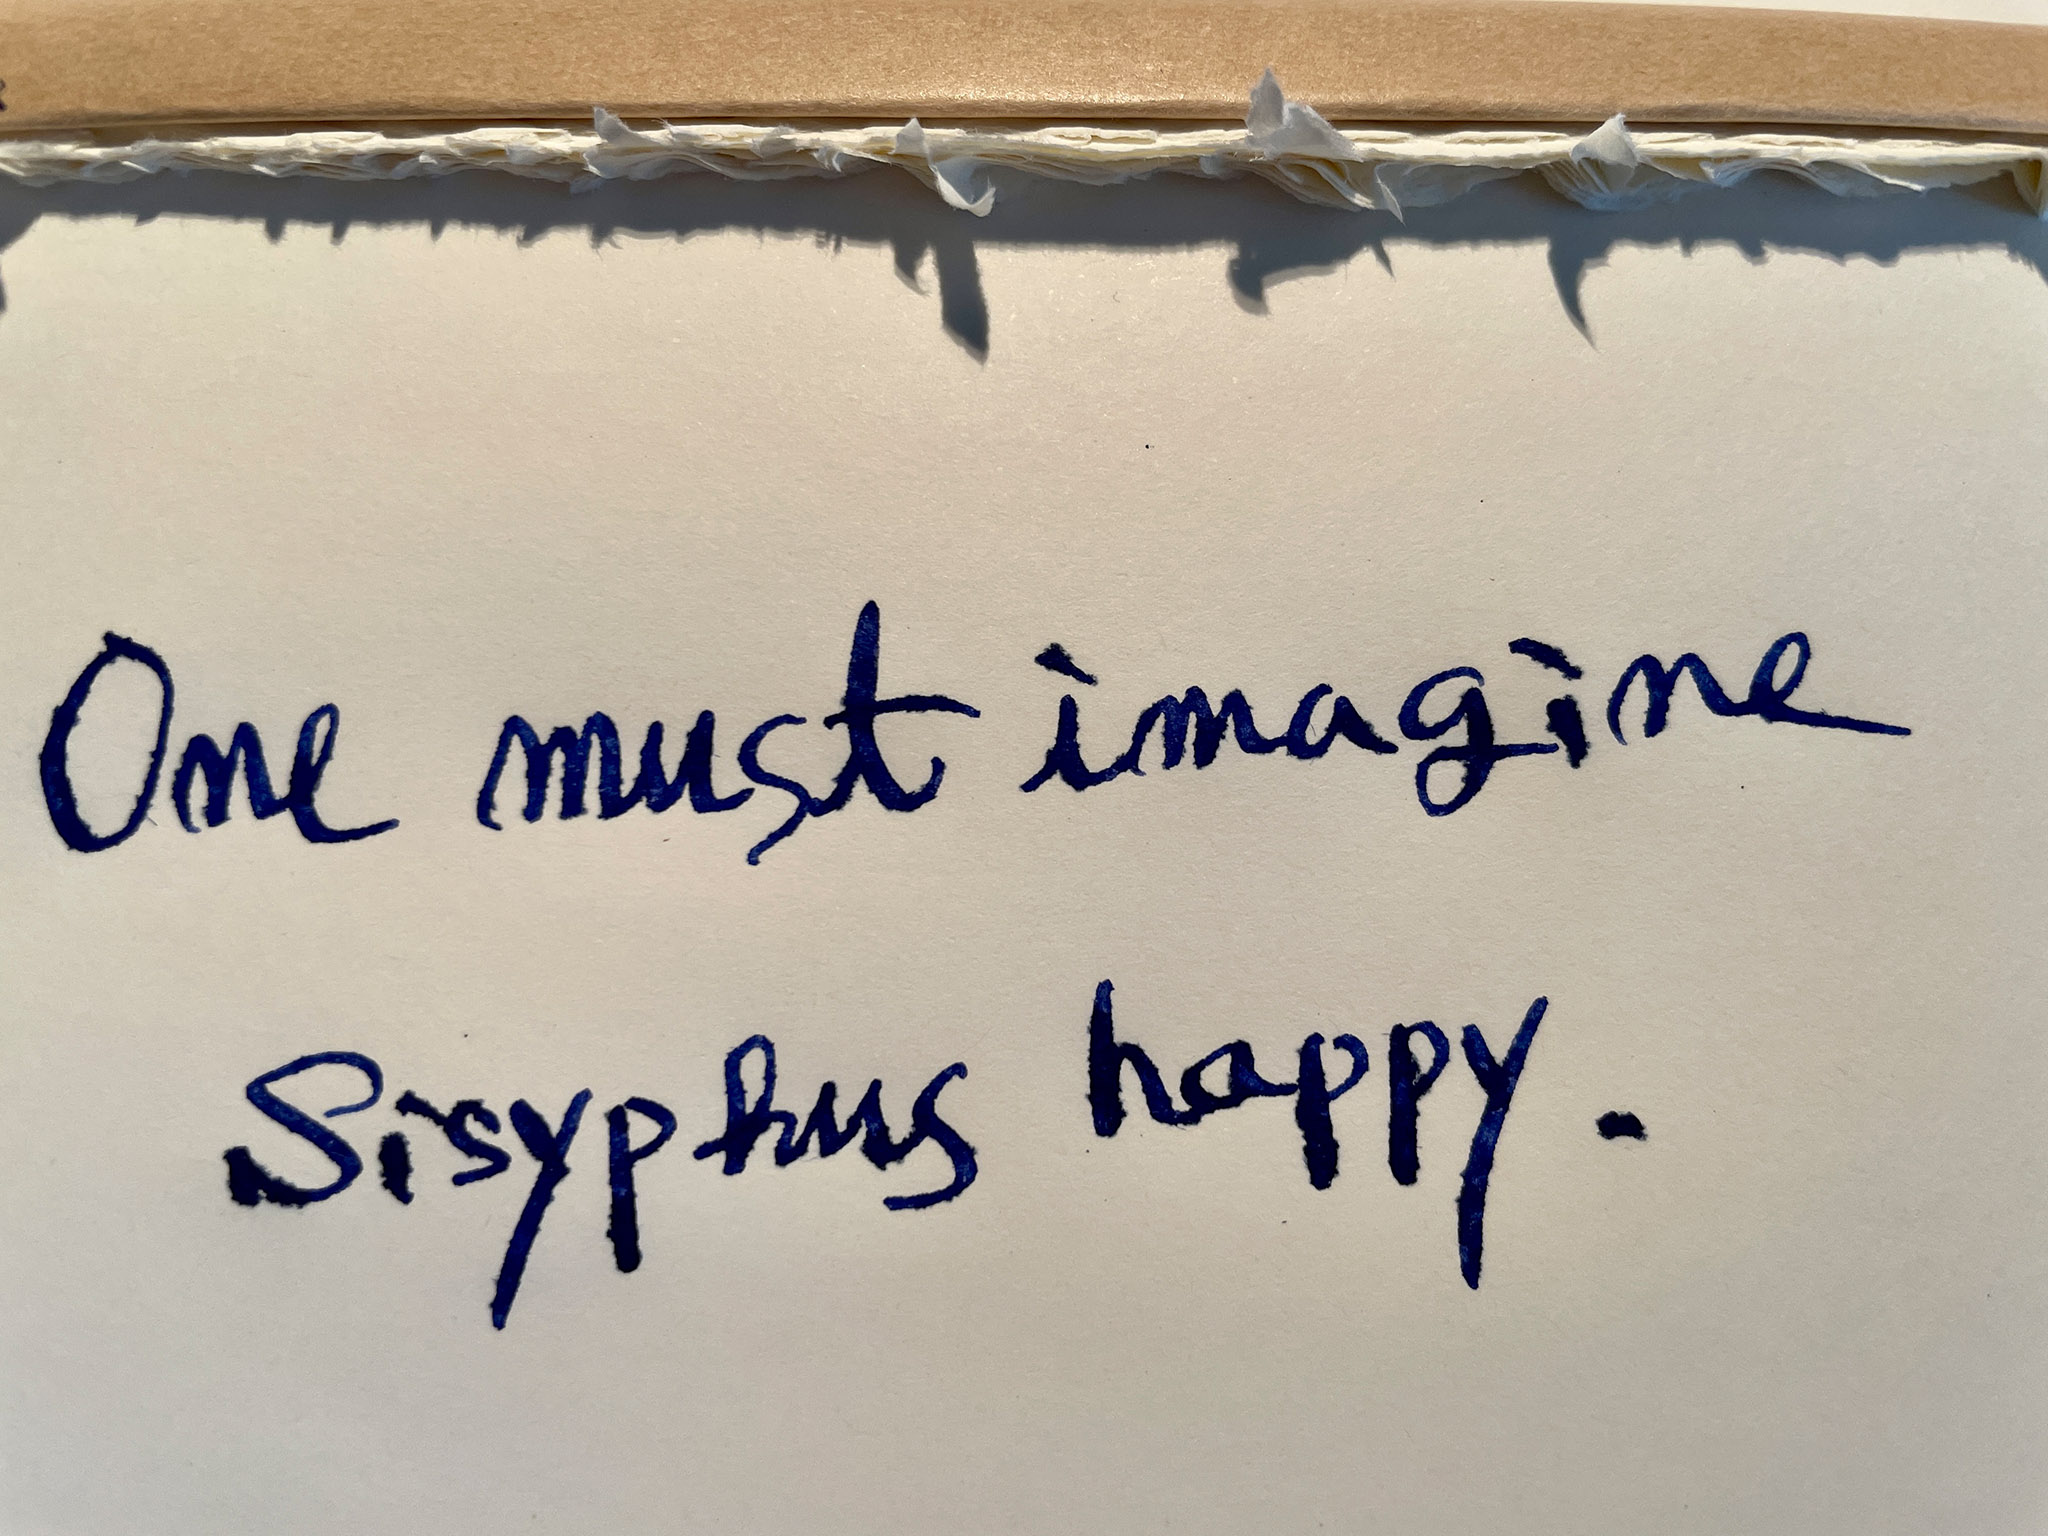 One must imagine
Sisyphus happy.